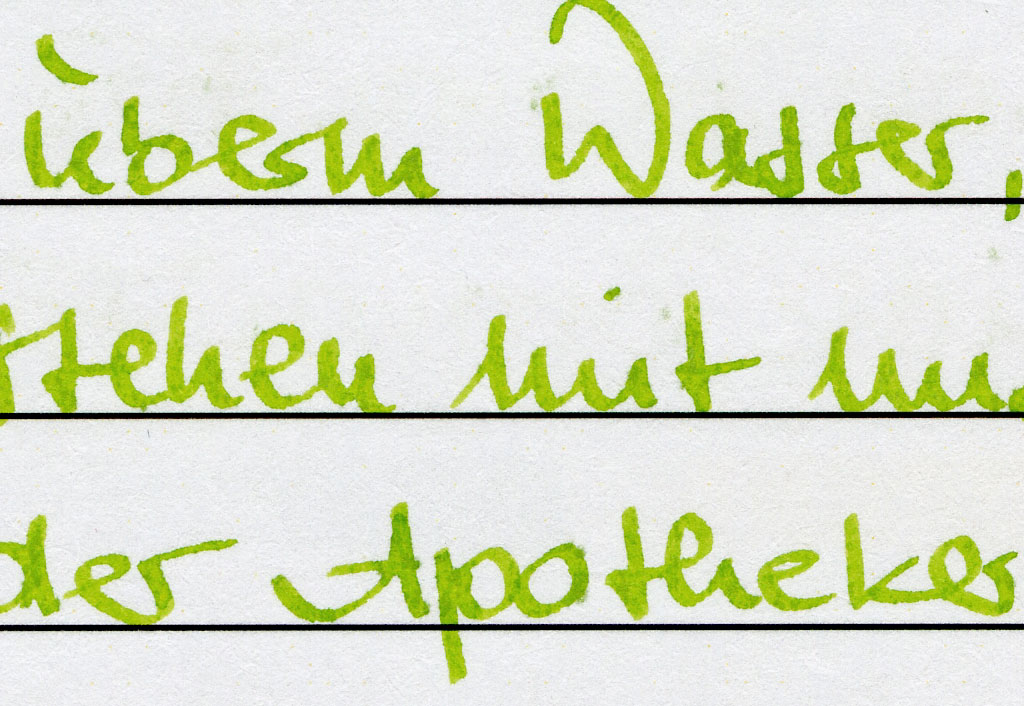 überm Wasser,
stehen mit
der Apotheker